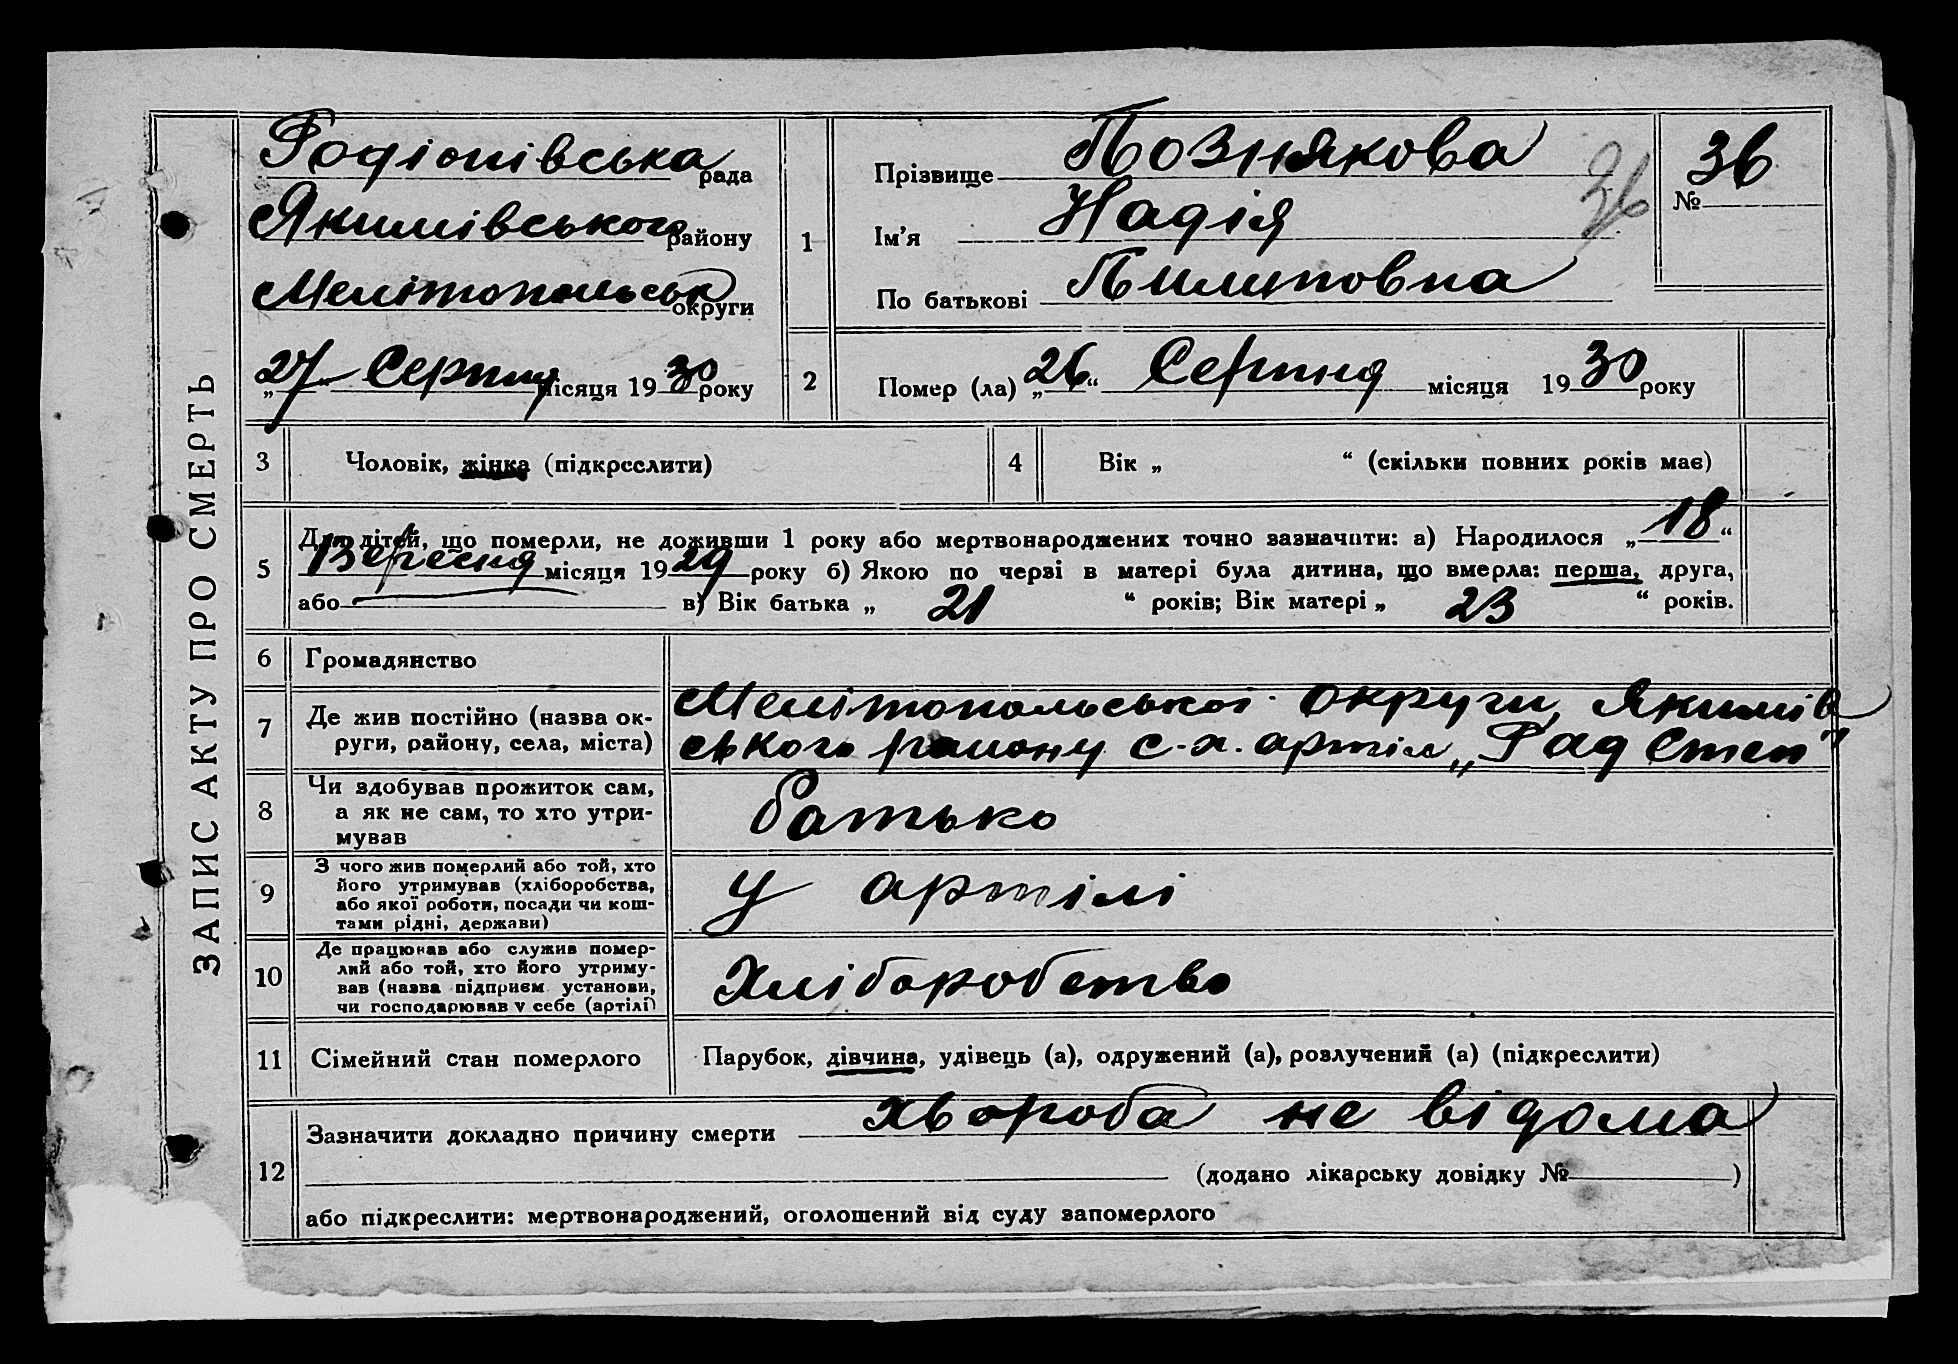 ЗАПИС АКТУ ПРО СМЕРТЬ
Родіонівська рада
Якимівського району
Мелітопольськ округи
„27 Серпня місяця 1930 року
1
Прізвище Познякова
Ім'я Надія
По батькові Пилиповна
36
№ 36
2
Помер (ла) „26“ Серпня місяця 1930 року
3 Чоловік, жінка (підкреслити)
4 Вік „ “ (скільки повних років має)
5 Для дітей, що померли, не доживши 1 року або мертвонароджених точно зазначити: а) Народилося „18“
Вересня місяця 1929 року б) Якою по черзі в матері була дитина, що вмерла: перша, друга,
або в) Вік батька „ 21 “ років; Вік матері „ 23 “ років.
6 Громадянство
7 Де жив постійно (назва ок-
руги, району, села, міста)
Мелітопольської округи, Якимів
ського району с.-х. артіл „Рад Степ"
8 Чи здобував прожиток сам,
а як не сам, то хто утри-
мував
батько
9 З чого жив померлий або той, хто
його утримував (хліборобства,
або якої роботи, посади чи кош-
тами рідні, держави)
у артілі
10 Де працював або служив помер-
лий або той, хто його утриму-
вав (назва підприєм. установи,
чи господарював у себе (артілі)
Хліборобство
11 Сімейний стан померлого
Парубок, дівчина, удівець (а), одружений (а), розлучений (а) (підкреслити)
12 Зазначити докладно причину смерти хвороба не відома
(додано лікарську довідку № )
або підкреслити: мертвонароджений, оголошений від суду запомерлого